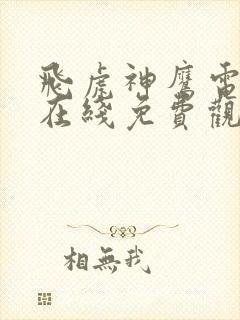 飛虎神鷹電
在綫免費觀
相無我